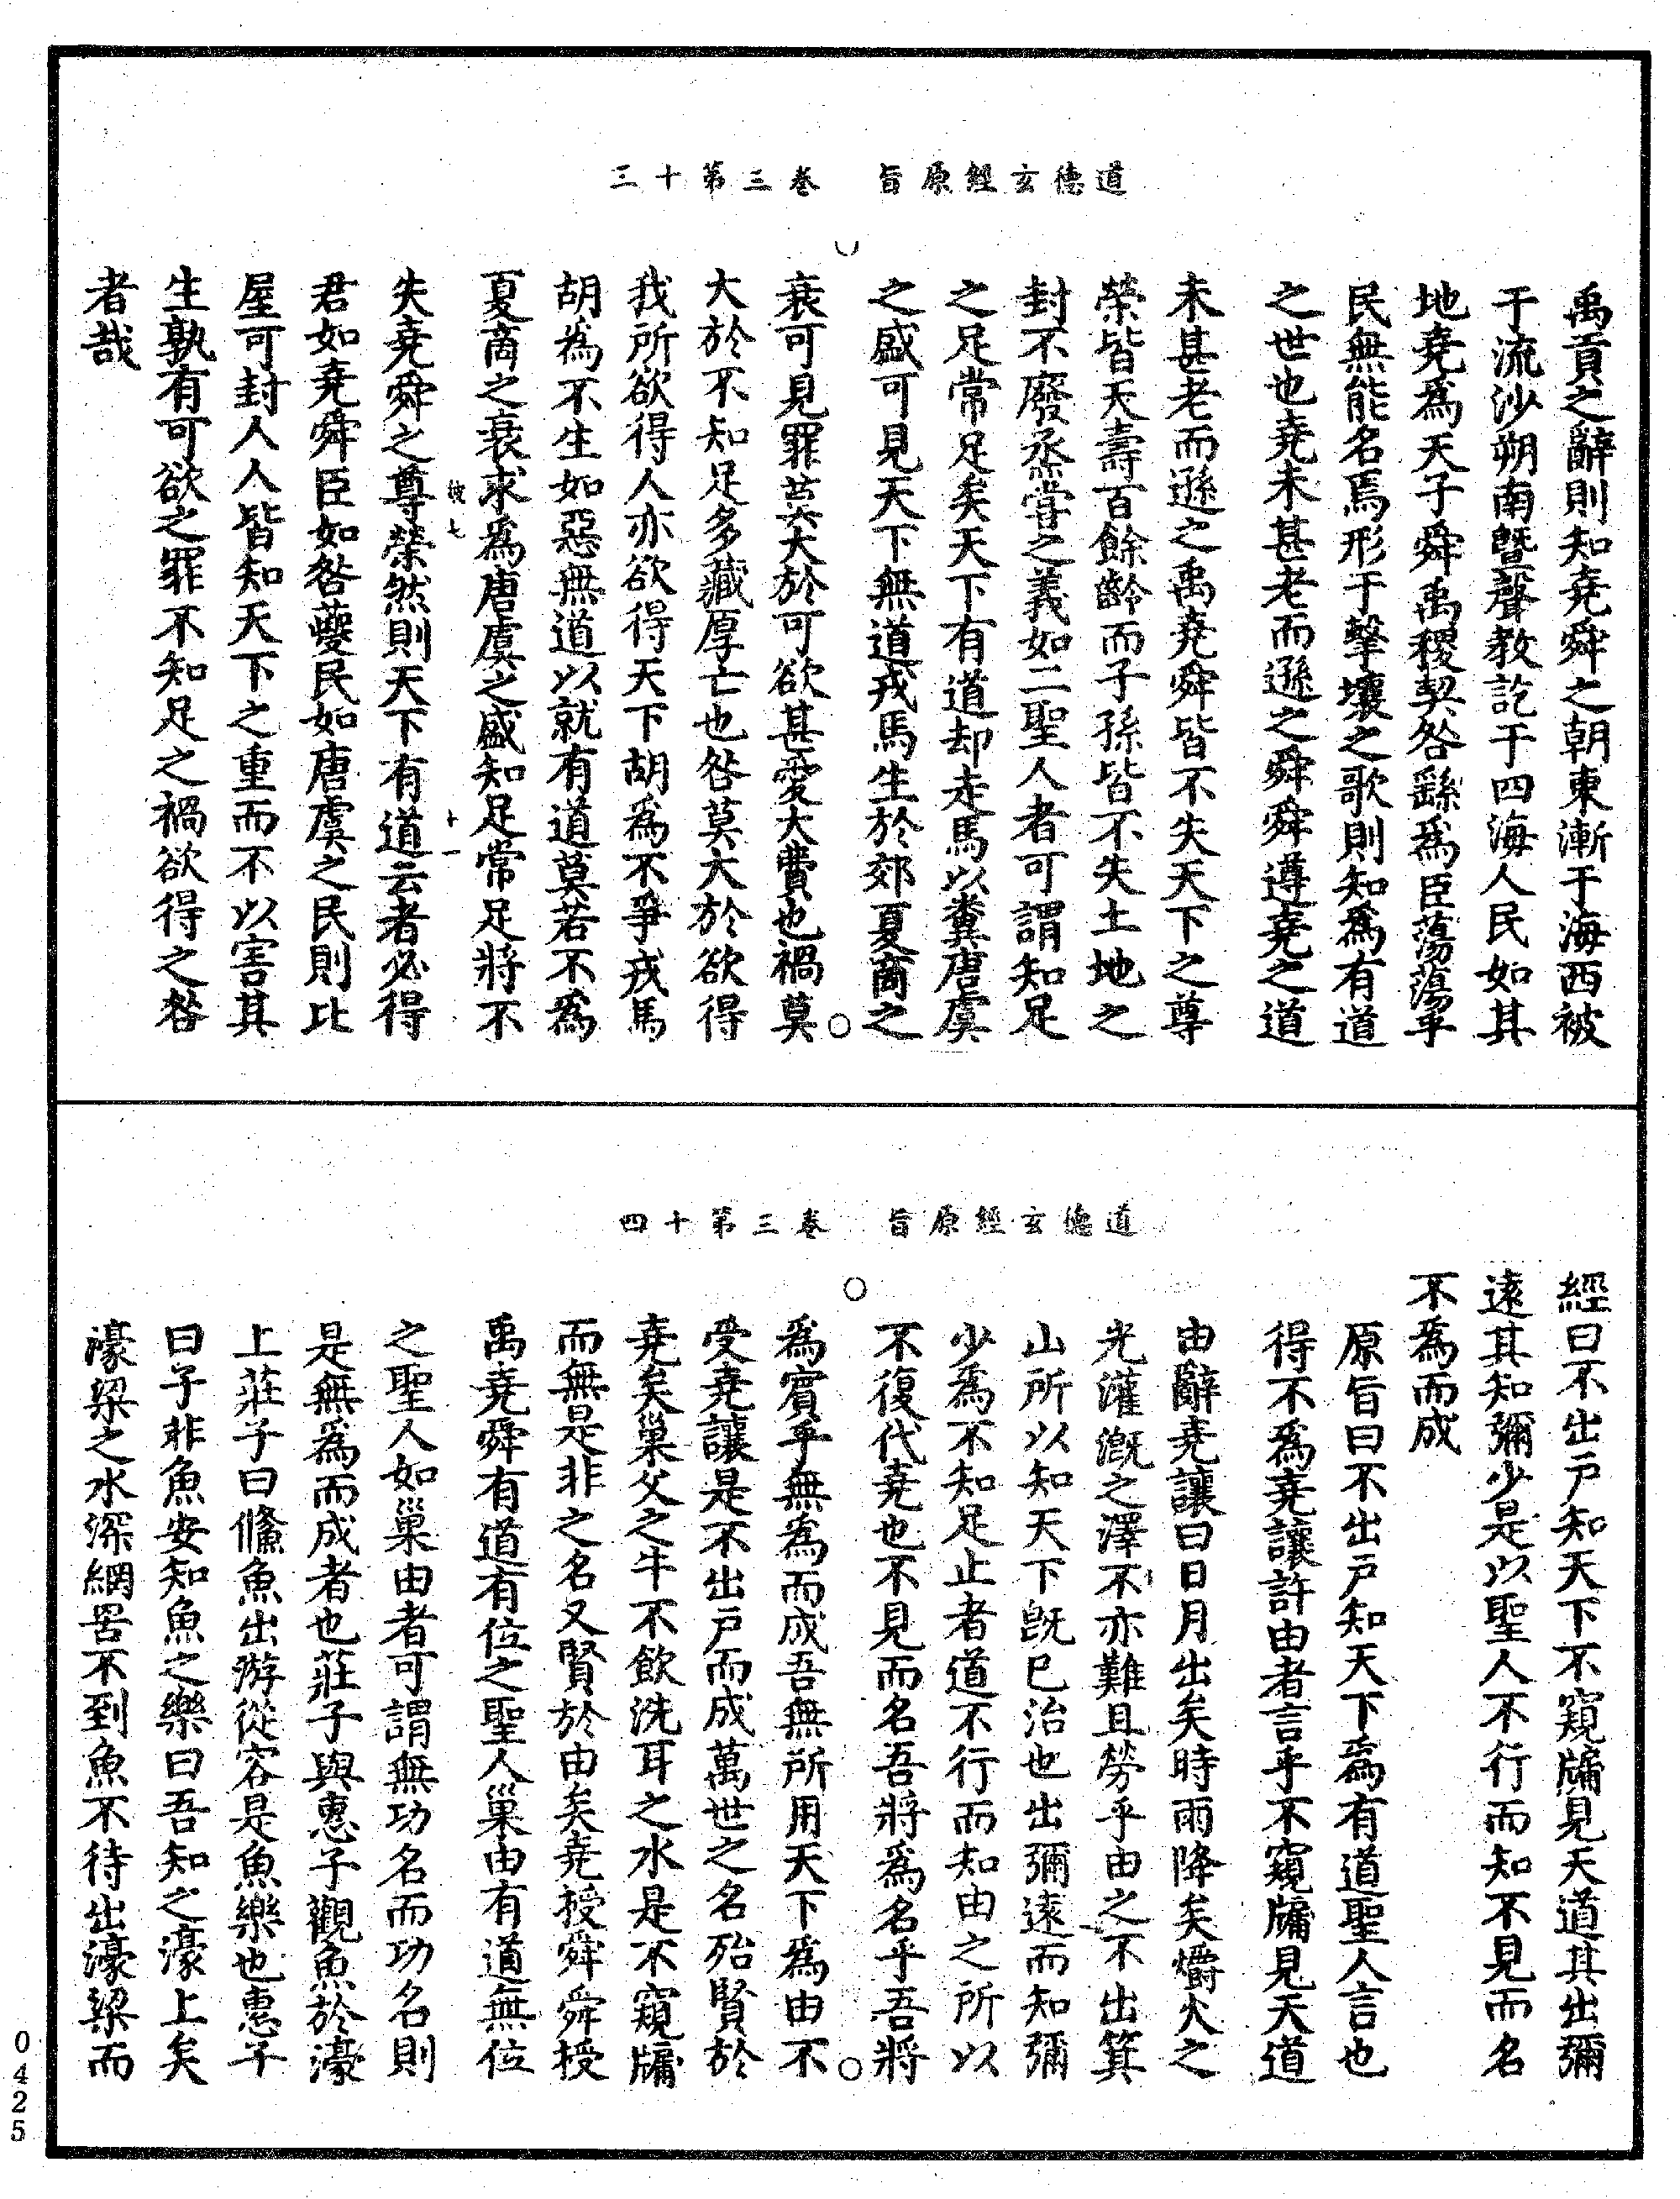 道德玄經原旨　卷三第十三
禹貢之辭則知堯舜之朝東漸于海西被
于流沙朔南曁聲教訖于四海人民如其
地堯爲天子舜禹稷契咎繇爲臣蕩蕩乎
民無能名焉形于擊壤之歌則知爲有道
之世也堯未甚老而遜之舜舜遵堯之道
未甚老而遜之禹堯舜皆不失天下之尊
榮皆天壽百餘齡而子孫皆不失土地之
封不廢烝甞之義如二聖人者可謂知足
之足常足矣天下有道却走馬以糞唐虞
之盛可見天下無道戎馬生於郊夏商之
衰可見罪莫大於可欲甚愛大費也禍莫
大於不知足多藏厚亡也咎莫大於欲得
我所欲得人亦欲得天下胡爲不爭戎馬
胡爲不生如惡無道以就有道莫若不爲
夏商之衰求爲唐虞之盛知足常足將不
失堯舜之尊榮然則天下有道云者必得
彼七
十一
君如堯舜臣如咎夔民如唐虞之民則比
屋可封人人皆知天下之重而不以害其
生孰有可欲之罪不知足之禍欲得之咎
者哉
道德玄經原旨　卷三第十四
經曰不出戸知天下不窺牖見天道其出彌
遠其知彌少是以聖人不行而知不見而名
不爲而成
原旨曰不出戸知天下爲有道聖人言也
得不爲堯讓許由者言乎不窺牖見天道
由辭堯讓曰日月出矣時雨降矣爝火之
光灌溉之澤不亦難且勞乎由之不出箕
山所以知天下旣已治也出彌遠而知彌
少爲不知足止者道不行而知由之所以
不復代堯也不見而名吾將爲名乎吾將
爲賓乎無爲而成吾無所用天下爲由不
受堯讓是不出戸而成萬世之名殆賢於
堯矣巢父之牛不飲洗耳之水是不窺牖
而無是非之名又賢於由矣堯授舜舜授
禹堯舜有道有位之聖人巢由有道無位
之聖人如巢由者可謂無功名而功名則
是無爲而成者也莊子與惠子觀魚於濠
上莊子曰儵魚出游從容是魚樂也惠子
曰子非魚安知魚之樂曰吾知之濠上矣
濠梁之水深網罟不到魚不待出濠梁而
0425